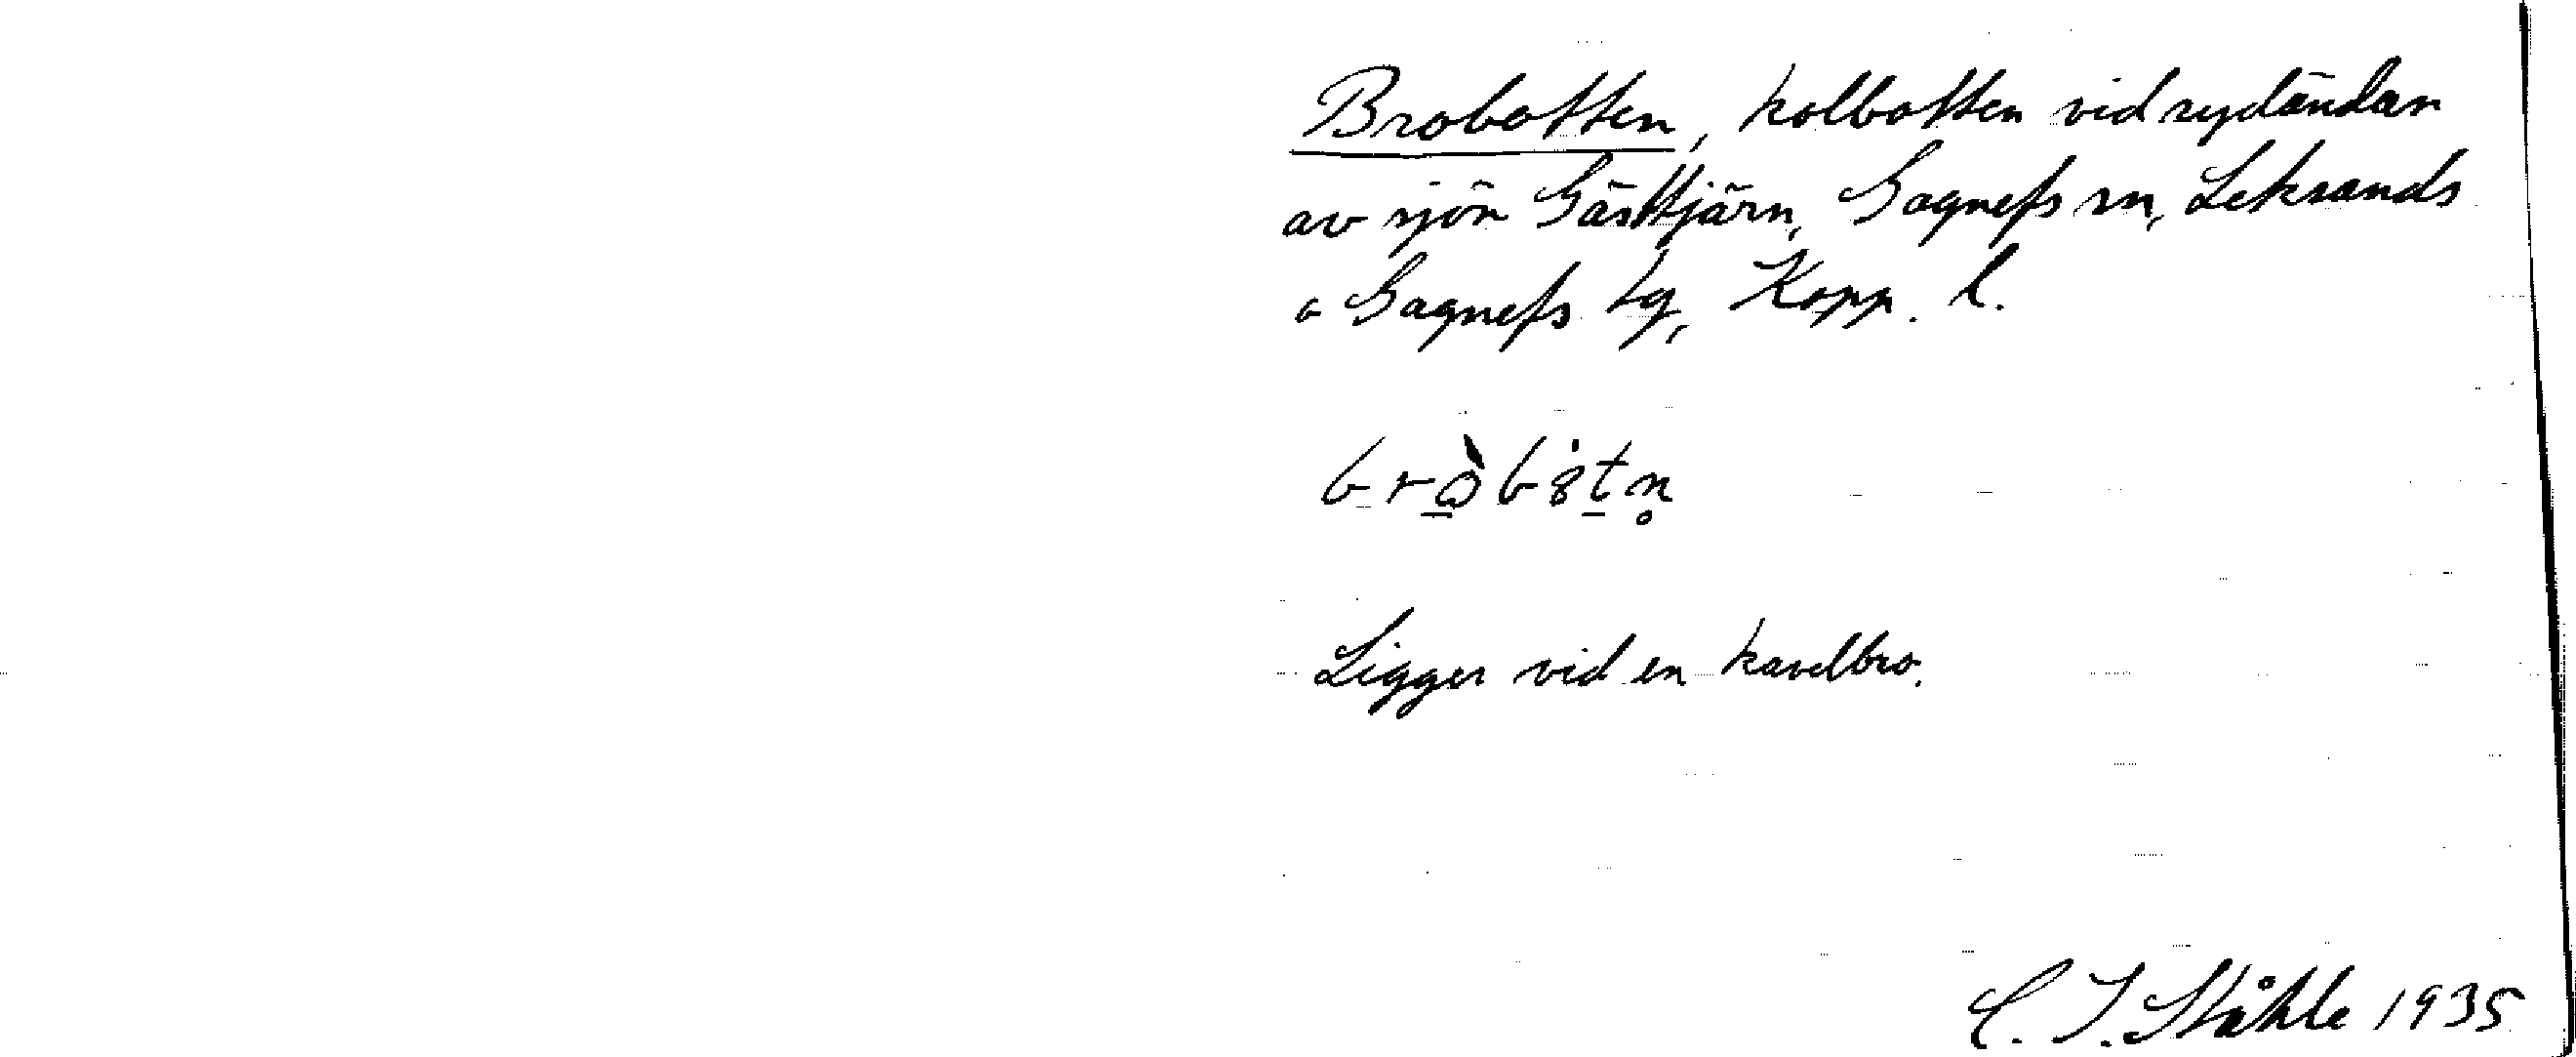 Brobotten, kolbotten vid sydändan
av sjön Gästtjärn, Gagnefs sn, Leksands
o Gagnefs tg, Kopp. l.
Ligger vid en kavelbro.
C. I. Ståhle 1935